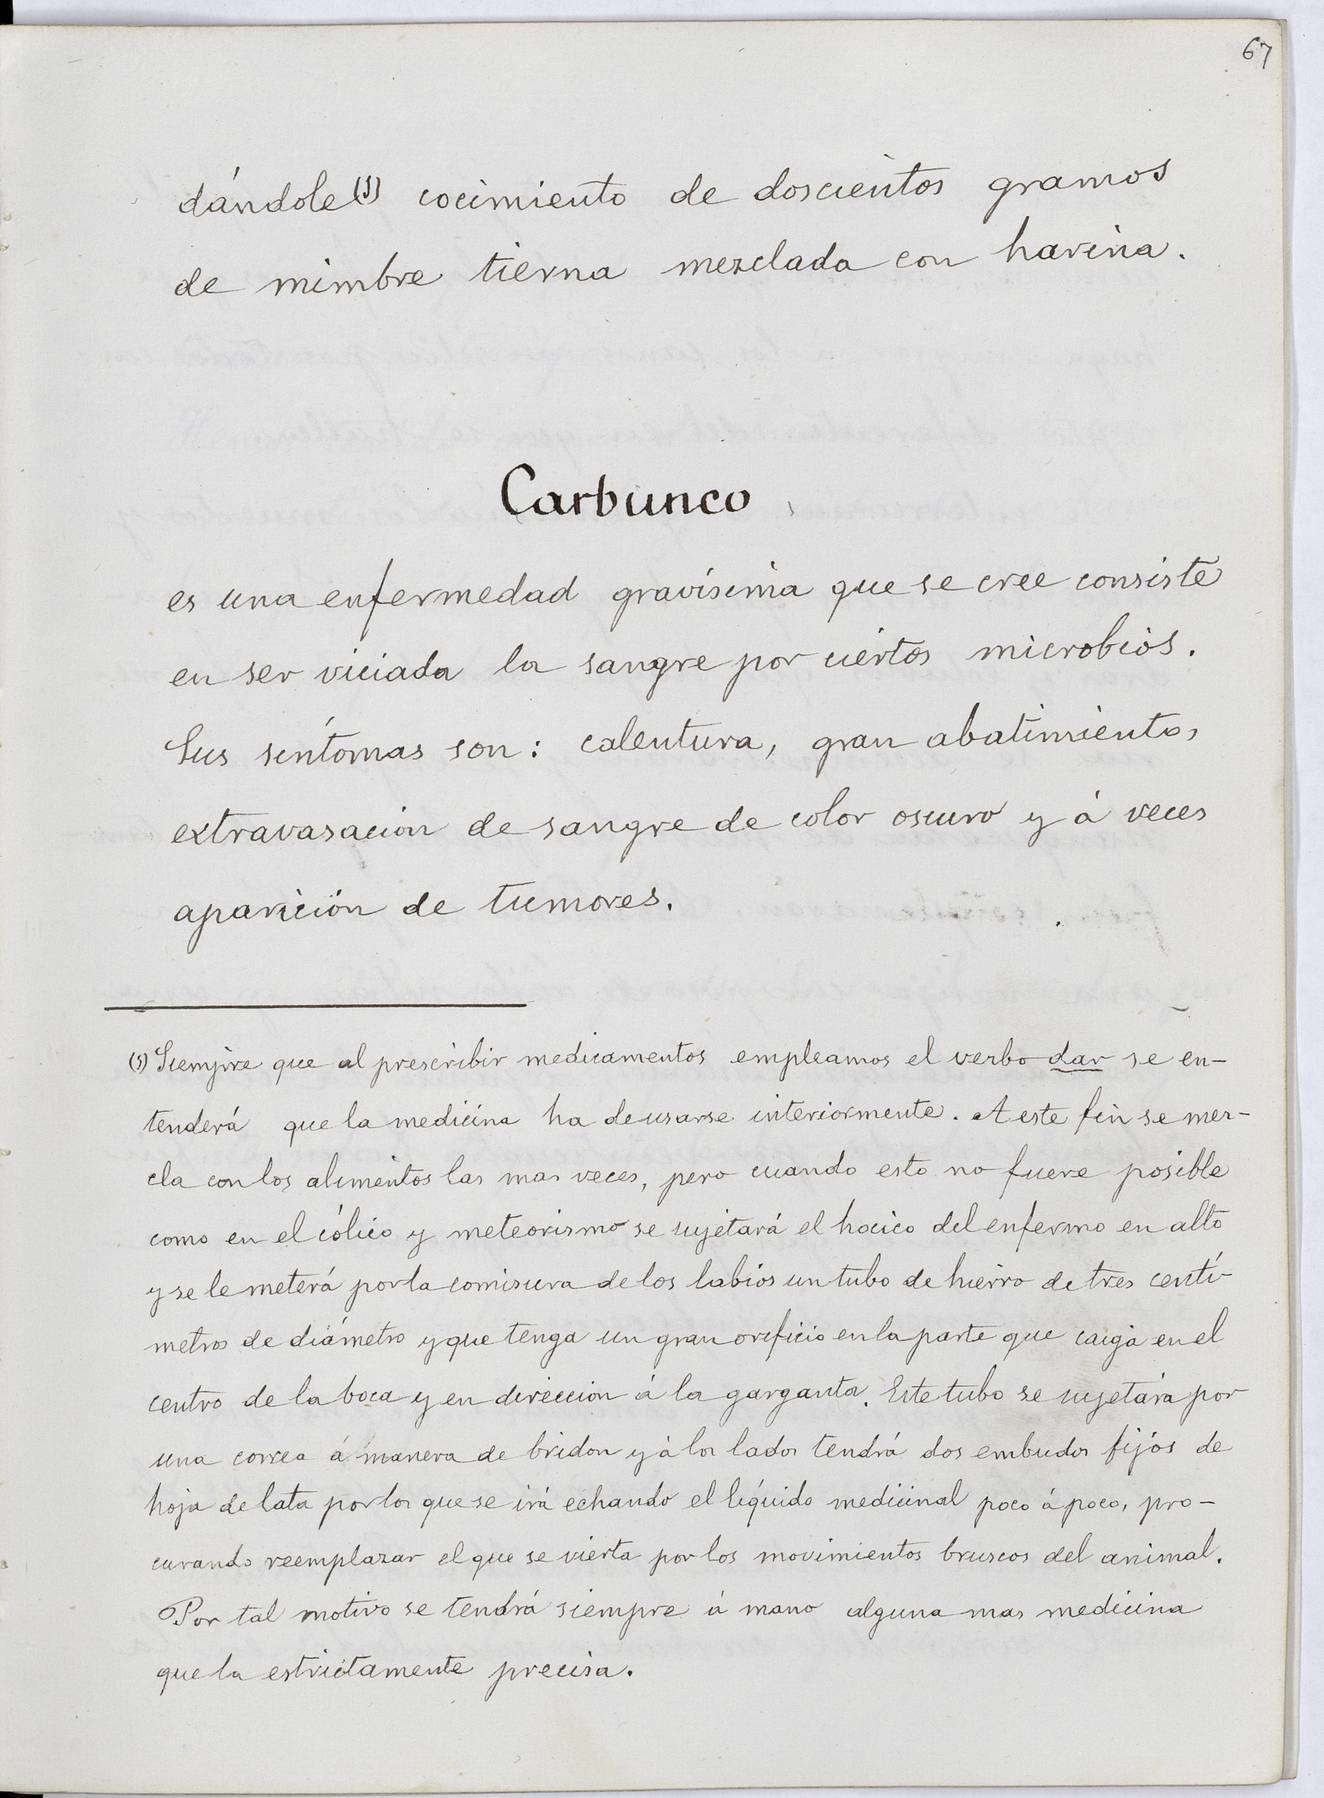 67
dándole (1) cocimiento de doscientos gramos
de mimbre tierna mezclada con harina.
Carbunco
es una enfermedad gravísima que se cree consiste
en ser viciada la sangre por ciertos microbios.
Sus síntomas son: calentura, gran abatimiento,
extravasación de sangre de color oscuro y á veces
aparición de tumores.
(1) Siempre que al prescribir medicamentos empleamos el verbo dar se en-
tenderá que la medicina ha de usarse interiormente. A este fin se mez-
cla con los alimentos las mas veces, pero cuando esto no fuere posible
como en el cólico y meteorismo se sujetará el hocico del enfermo en alto
y se le meterá por la comisura de los labios un tubo de hierro de tres centí-
metros de diámetro y que tenga un gran orificio en la parte que caiga en el
centro de la boca y en direccion á la garganta. Este tubo se sujetará por
una correa á manera de bridon y á los lados tendrá dos embudos fijos de
hoja de lata por los que se irá echando el líquido medicinal poco á poco, pro-
curando reemplazar el que se vierta por los movimientos bruscos del animal.
Por tal motivo se tendrá siempre á mano alguna mas medicina
que la estrictamente precisa.